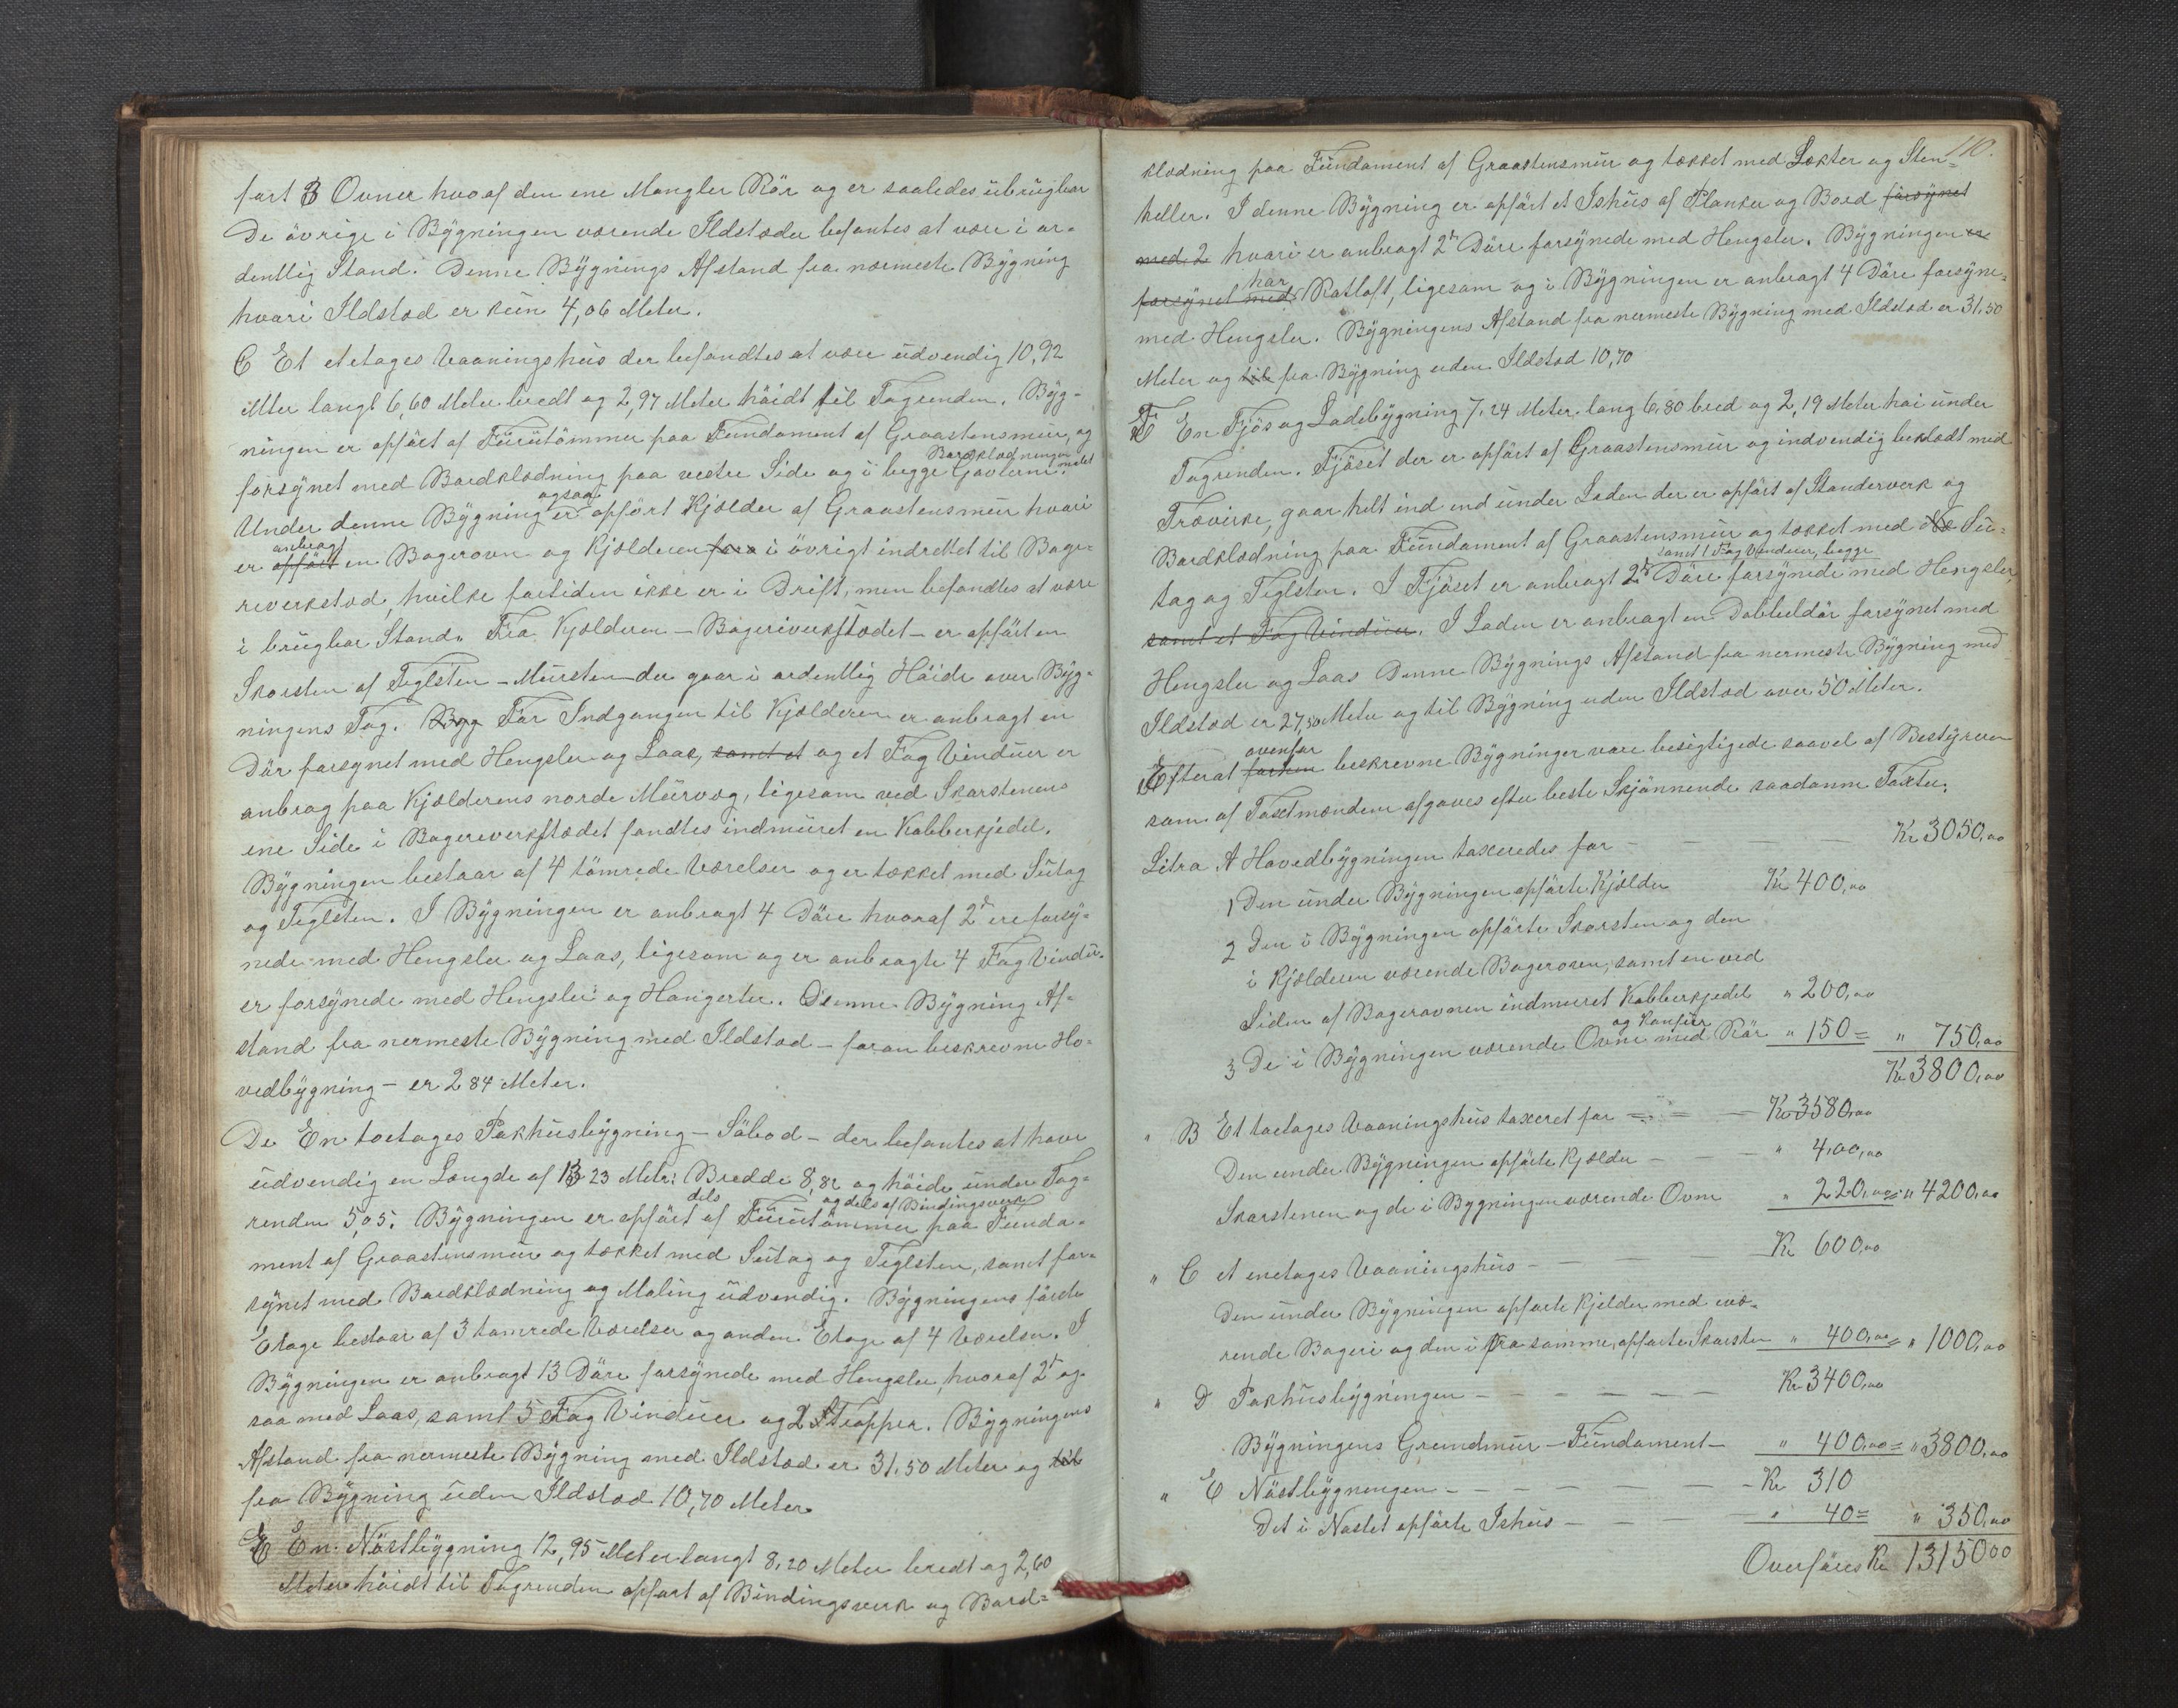 fört 3 Ovner hvoaf den ene Mangler Rör og er saaledes ubrugbar
De övrige i Bygningen værende Ildstæder befantes at være i or-
dentlig Stand. Denne Bygnings Afstand fra nærmeste Bygning
hvori Ildstæd er kun 4,06 Meter.
C Et etetages Vaaningshus der befandtes at være udvendig 10,92
Mter langt 6,60 Meter bredt og 2,97 Meter höidt til Tagrenden. Byg-
ningen er opfört af Furutömmer paa Fundament af Graastensmur, og
forsynet med Bordklædning paa vestre Side og i begge Gavlerne Bordklædningen malet
Under denne Bygning er ogsaa opfört Kjælder af Graastensmur hvori
er opfört anbragt en Bagerovn og Kjælderen fora i övrigt indrettet til Bage-
reverksted, hvilke fortiden ikke er i Drift, men befandtes at være
i brugbar Stand. Fra Kjælderen - Bageriverkstædet - er opfört en
Skorsten af Teglsten - Mursten - der gaar i ordentlig Höide over Byg-
ningens Tag. Bygg For Indgangen til Kjælderen er anbragt en
Dör forsynet med Hengsler og Laas, samt et og et Fag Vinduer er
anbrag paa Kjælderens nordre Murvæg, ligesom ved Skorstenens
ene Side i Bagereverkstædet fandtes indmuret en Kobberkjedel.
Bygningen bestaar af 4 tömrede Værelser og er tækket med Sutag
og Teglsten. I Bygningen er anbragt 4 Döre hvoraf 2de ere forsy-
nede med Hengsler og Laas, ligesom og er anbragte 4 Fag Vindu-
er forsynede med Hengsler og Hængerter. Denne Bygning Af-
stand fra nermeste Bygning med Ildstæd - foran beskrevne Ho-
vedbygning - er 2 84 Meter.
De En toetages Pakhusbygning - Söbod - der befantes at have
udvendig en Længde af 13 23 Metr: Bredde 8,82 og höide under Tag-
renden 5,05. Bygningen er opfört dels af Furutömmer og dels af Bindingsverk paa Funda-
ment af Graastensmur og tækket med Sutag og Teglsten, samt for-
synet med Bordklædning og Maling udvendig. Bygningens förste
Etage bestaar af 3 tömrede Værelser og anden Etage af 4 Værelser. I
Bygningen er anbragt 13 Döre forsynede med Hengsler, hvoraf 2de og-
saa med Laas, samt 5 Fag Vinduer og 2 Trapper. Bygningens
Afstand fra nermeste Bygning med Ildstæd er 31,50 Meter og til
fra Bygning uden Ildstæd 10,70 Meter.
E En Nöstbygning 12,95 Meter langt 8,20 Meter bredt og 2,60
Meter höidt til Tagrenden opfört af Bindingsverk og Bord-
110.
klædning paa Fundament af Graastensmur og tækket med Lækter og Sten-
heller. I denne Bygning er opfört et Ishus af Planker og Bord forsynet
med 2 hvori er anbragt 2de Döre forsynede med Hengsler. Bygningen er
forsynet med har Ratloft, ligesom og i Bygningen er anbragt 4 Döre forsyne-
med Hengsler. Bygningens Afstand fra nermeste Bygning med Ildstæd er 31,50
Meter og til fra Bygning uden Ildstæd 10,70
F En Fjös og Ladebygning 7,24 Meter lang 6,80 bred og 2,19 Meter höi under
Tagrenden. Fjöset der er opfört af Graastensmur og indvendig beklædt med
Trævirke, gaar helt ind ind under Laden der er opfört af Standerverk og
Bordklædning paa Fundament af Graastensmur og tækket med Su-
tag og Teglsten. I Fjöset er anbragt 2de Döre samt 1 Fag Vinduer, begge forsynede med Hengsler,
samt et Fag Vinduer. I Laden er anbragt en Dobbeldör forsynet med
Hengsler og Laas Denne Bygnings Afstand fra nermeste Bygning med
Ildstæd er 27,50 Meter og til Bygning uden Ildstæd over 50 Meter.
Efterat ovenfor beskrevne Bygninger vare besigtigede saavel af Bestyreren
som af Taxtmændene afgaves efter beste Skjönnende saadanne Taxter:
Litra A Hovedbygningen taxeredes for - - - - Kr 3050,00
1 Den under Bygningen opförte Kjælder Kr 400,00
2 Den i Bygningen opförte Skorsten og den
i Kjælderen værende Bagerovn, samt en ved
Siden af Bagerovnen indmuret Kobberkjedel " 200,00
3 De i Bygningen værende Ovne og Komfur med Rör " 150= " 750,00
Kr 3800,00
" B Et toetages Vaaningshus taxeret for - - - Kr 3580,00
Den under Bygningen opförte Kjælder - - - " 4,00,00
Skorstenen og de i Bygningen værende Ovne " 220,00= " 4200,00
" C et enetages Vaaningshus - - - Kr 600,00
Den under Bygningen opförte Kjelder med væ-
rende Bageri og den i fra samme opförte Skorsten " 400,00= " 1000,00
" D Pakhusbygningen - - - - - - Kr 3400,00
Bygningens Grundmur - Fundament - " 400,00= " 3800,00
" E Nöstbygningen - - - - - - Kr 310
Det i Nöstet opförte Ishus - - - - " 40= " 350,00
Overföres Kr 13150 00